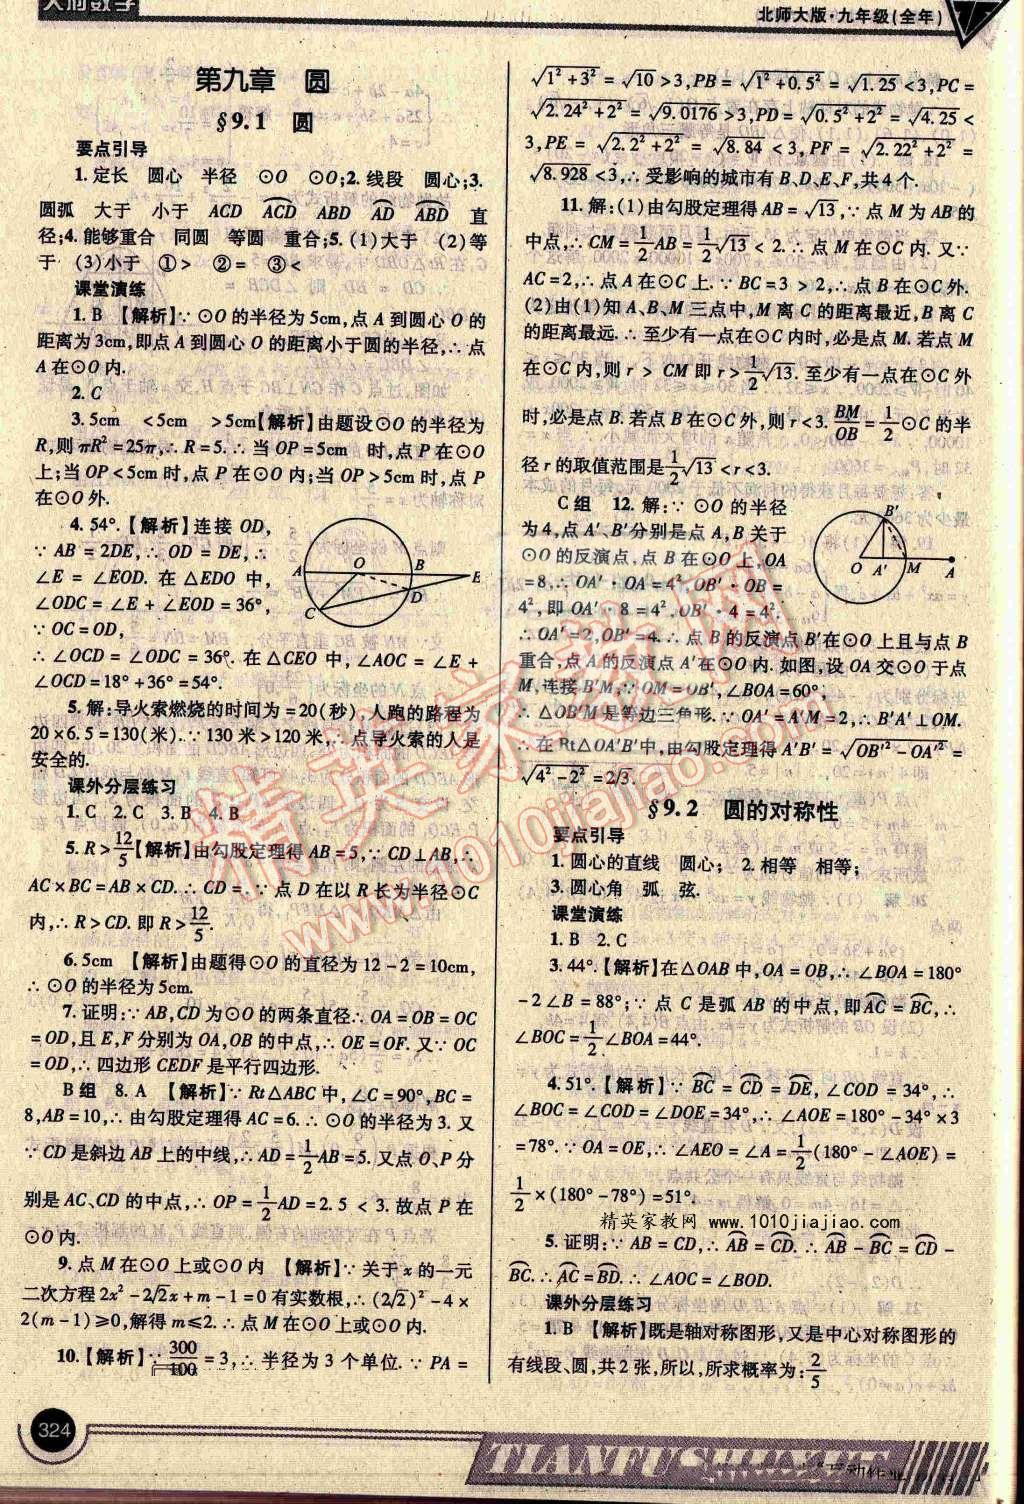 天府数学
北师大版·九年级(全年)
第九章 圆
§9.1 圆
要点引导
1.定长 圆心 半径 ⊙O ⊙O;2.线段 圆心;3.
圆弧 大于 小于 ACD ⌒ACD ABD ⌒AD ⌒ABD 直
径;4.能够重合 同圆 等圆 重合;5.(1)大于 (2)等
于 (3)小于 ①> ②= ③<
课堂演练
1.B 【解析】∵⊙O的半径为5cm,点A到圆心O的
距离为3cm,即点A到圆心O的距离小于圆的半径,∴点
A在⊙O内.
2.C
3.5cm <5cm >5cm【解析】由题设⊙O的半径为
R,则πR²=25π,∴R=5.∴当OP=5cm 时,点P在⊙O
上;当OP<5cm时,点P在⊙O内;当OP>5cm时,点P
在⊙O外.
4.54°.【解析】连接OD,
∵AB=2DE,∴OD=DE,∴
∠E=∠EOD.在△EDO中,
∠ODC=∠E+∠EOD=36°,
∵OC=OD,
∴∠OCD=∠ODC=36°.在△CEO中,∠AOC=∠E+
∠OCD=18°+36°=54°.
A O B E C D
5.解:导火索燃烧的时间为=20(秒),人跑的路程为
20×6.5=130(米).∵130米>120米,∴点导火索的人是
安全的.
课外分层练习
1.C 2.C 3.B 4.B
5.R>12/5【解析】由勾股定理得AB=5,∵CD⊥AB,∴
AC×BC=AB×CD.∴CD=.∵点D在以R长为半径⊙C
内,∴R>CD.即R>12/5.
6.5cm 【解析】由题得⊙O的直径为12-2=10cm,
∴⊙O的半径为5cm.
7.证明:∵AB,CD为⊙O的两条直径∴OA=OB=OC
=OD,且E,F分别为OA,OB的中点,∴OE=OF.又∵OC
=OD,∴四边形CEDF是平行四边形.
B组 8.A 【解析】∵Rt△ABC中,∠C=90°,BC=
8,AB=10,∴由勾股定理得AC=6.∴⊙O的半径为3.又
∵CD是斜边AB上的中线,∴AD=1/2AB=5.又点O、P分
别是AC、CD的中点,∴OP=1/2AD=2.5<3.故点P在
⊙O内.
9.点M在⊙O上或⊙O内 【解析】∵关于x的一元
二次方程2x²-2√2x+m-1=0有实数根,∴(2√2)²-4×
2(m-1)≥0,解得m≤2.∴点M在⊙O上或⊙O内.
10.【解析】∵300/100=3,∴半径为3个单位.∵PA=
√1²+3²=√10>3,PB=√1²+0.5²=√1.25<3,PC=
√2.24²+2²=√9.0176>3,PD=√0.5²+2²=√4.25<
3,PE=√2.2²+2²=√8.84<3,PF=√2.22²+2²=
√8.928<3,∴受影响的城市有B、D、E、F,共4个.
11.解:(1)由勾股定理得AB=√13,∵点M为AB的
中点,∴CM=1/2AB=1/2√13<2.∴点M在⊙C内.又∵
AC=2,∴点A在⊙C上.∵BC=3>2,∴点B在⊙C外.
(2)由(1)知A、B、M三点中,M离C的距离最近,B离C
的距离最远.∴至少有一点在⊙C内时,必是点M.若点M
在⊙C内,则r>CM即r>1/2√13.至少有一点在⊙C外
时,必是点B.若点B在⊙C外,则r<3.BM/OB=1/2⊙C的半
径r的取值范围是1/2√13<r<3.
C组 12.解:∵⊙O的半径
为4,点A′、B′分别是点A,B关于
⊙O的反演点,点B在⊙O上,OA
=8,∴OA′·OA=4²,OB′·OB=
4²,即OA′·8=4²,OB′·4=4².
∴OA′=2,OB′=4.∴点B的反演点B′在⊙O上且与点B
重合,点A的反演点A′在⊙O内.如图,设OA交⊙O于点
M,连接B′M,∵OM=OB′,∠BOA=60°,
∴△OB′M是等边三角形.∵OA′=A′M=2,∴B′A′⊥OM.
∴在Rt△OA′B′中,由勾股定理得A′B′=√OB′²-OA′²=
√4²-2²=2√3.
B′ O A′ M A
§9.2 圆的对称性
要点引导
1.圆心的直线 圆心; 2.相等 相等;
3.圆心角 弧 弦.
课堂演练
1.B 2.C
3.44°.【解析】在△OAB中,OA=OB,∴∠BOA=180°
-2∠B=88°;∵点C是弧AB的中点,即⌒AC=⌒BC,∴
∠BOC=1/2∠BOA=44°.
4.51°.【解析】∵⌒BC=⌒CD=⌒DE,∠COD=34°,∴
∠BOC=∠COD=∠DOE=34°,∴∠AOE=180°-34°×3
=78°.∵OA=OE,∴∠AEO=∠A=1/2(180°-∠AOE)=
1/2×(180°-78°)=51°.
精英家教网 www.1010jiajiao.com
5.证明:∵AB=CD,∴⌒AB=⌒CD.∴⌒AB-⌒BC=⌒CD-
⌒BC.∴⌒AC=⌒BD.∴∠AOC=∠BOD.
课外分层练习
1.B 【解析】既是轴对称图形,又是中心对称图形的
有线段、圆,共2张,所以,所求概率为:2/5
324
TIANFU SHUXUE
精英家教网
www.1010jiajiao.com